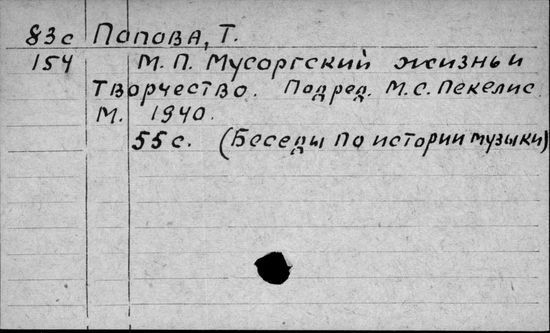 83с Попова, Т.
154 М. П. Мусоргский жизнь и
творчество. Под ред. М.С. Пекелис
М. 1940.
55 с. (Беседы по истории музыки)